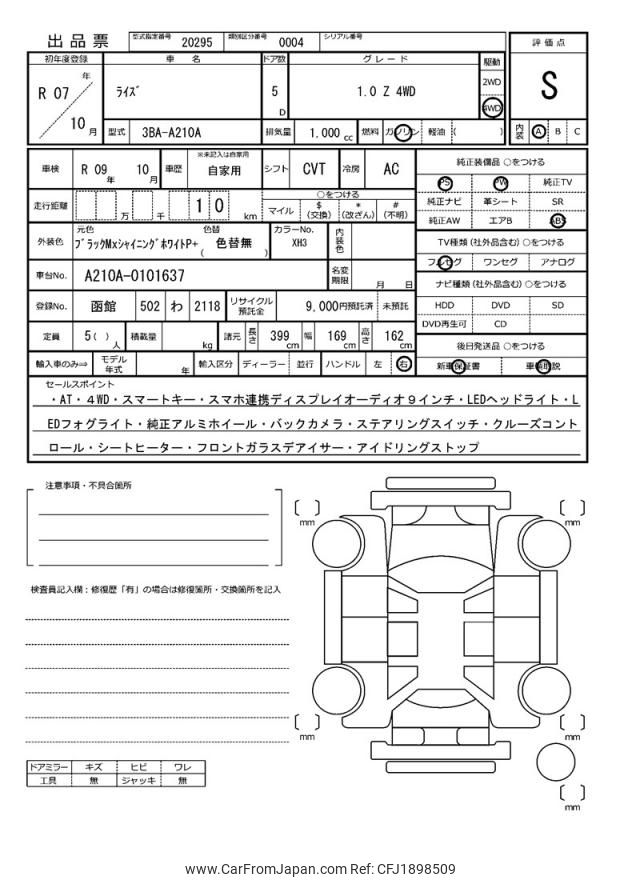 出品票 型式指定番号 20295 類別区分番号 0004 シリアル番号
評価点
S
内装 A B C
初年度登録 車名 ドア数 グレード 駆動
R 07 年 10 月 ライズ 5 D 1.0 Z 4WD 2WD 4WD
型式 3BA-A210A 排気量 1.000 cc 燃料 ガソリン 軽油 ( )
車検 R 09 年 10 月 車歴 ※未記入は自家用 自家用 シフト CVT 冷房 AC
走行距離 万 千 1 0 km ○をつける
マイル $(交換) *(改ざん) #(不明)
外装色 元色 ブラックMxシャイニングホワイトP+ 色替 ( 色替無 ) カラーNo. XH3 内装色
車台No. A210A-0101637 名変期限 月 日
登録No. 函館 502 わ 2118 リサイクル預託金 9,000円預託済 未預託
定員 5( )人 積載量 kg 諸元 長さ 399 cm 幅 169 cm 高さ 162 cm
輸入車のみ⇒ モデル年式 年 輸入区分 ディーラー 並行 ハンドル 左 右
純正装備品 ○をつける
PS PW 純正TV
純正ナビ 革シート SR
純正AW エアB ABS
TV種類(社外品含む)○をつける
フルセグ ワンセグ アナログ
ナビ種類(社外品含む)○をつける
HDD DVD SD
DVD再生可 CD
後日発送品 ○をつける
新車保証書 車輌取説
セールスポイント
・AT・4WD・スマートキー・スマホ連携ディスプレイオーディオ9インチ・LEDヘッドライト・L
EDフォグライト・純正アルミホイール・バックカメラ・ステアリングスイッチ・クルーズコント
ロール・シートヒーター・フロントガラスデアイサー・アイドリングストップ
注意事項・不具合箇所
検査員記入欄：修復歴「有」の場合は修復箇所・交換箇所を記入
ドアミラー キズ ヒビ ワレ
工具 無 ジャッキ 無
[ ] mm
[ ] mm
[ ] mm
[ ] mm
[ ] mm
www.CarFromJapan.com Ref: CFJ1898509